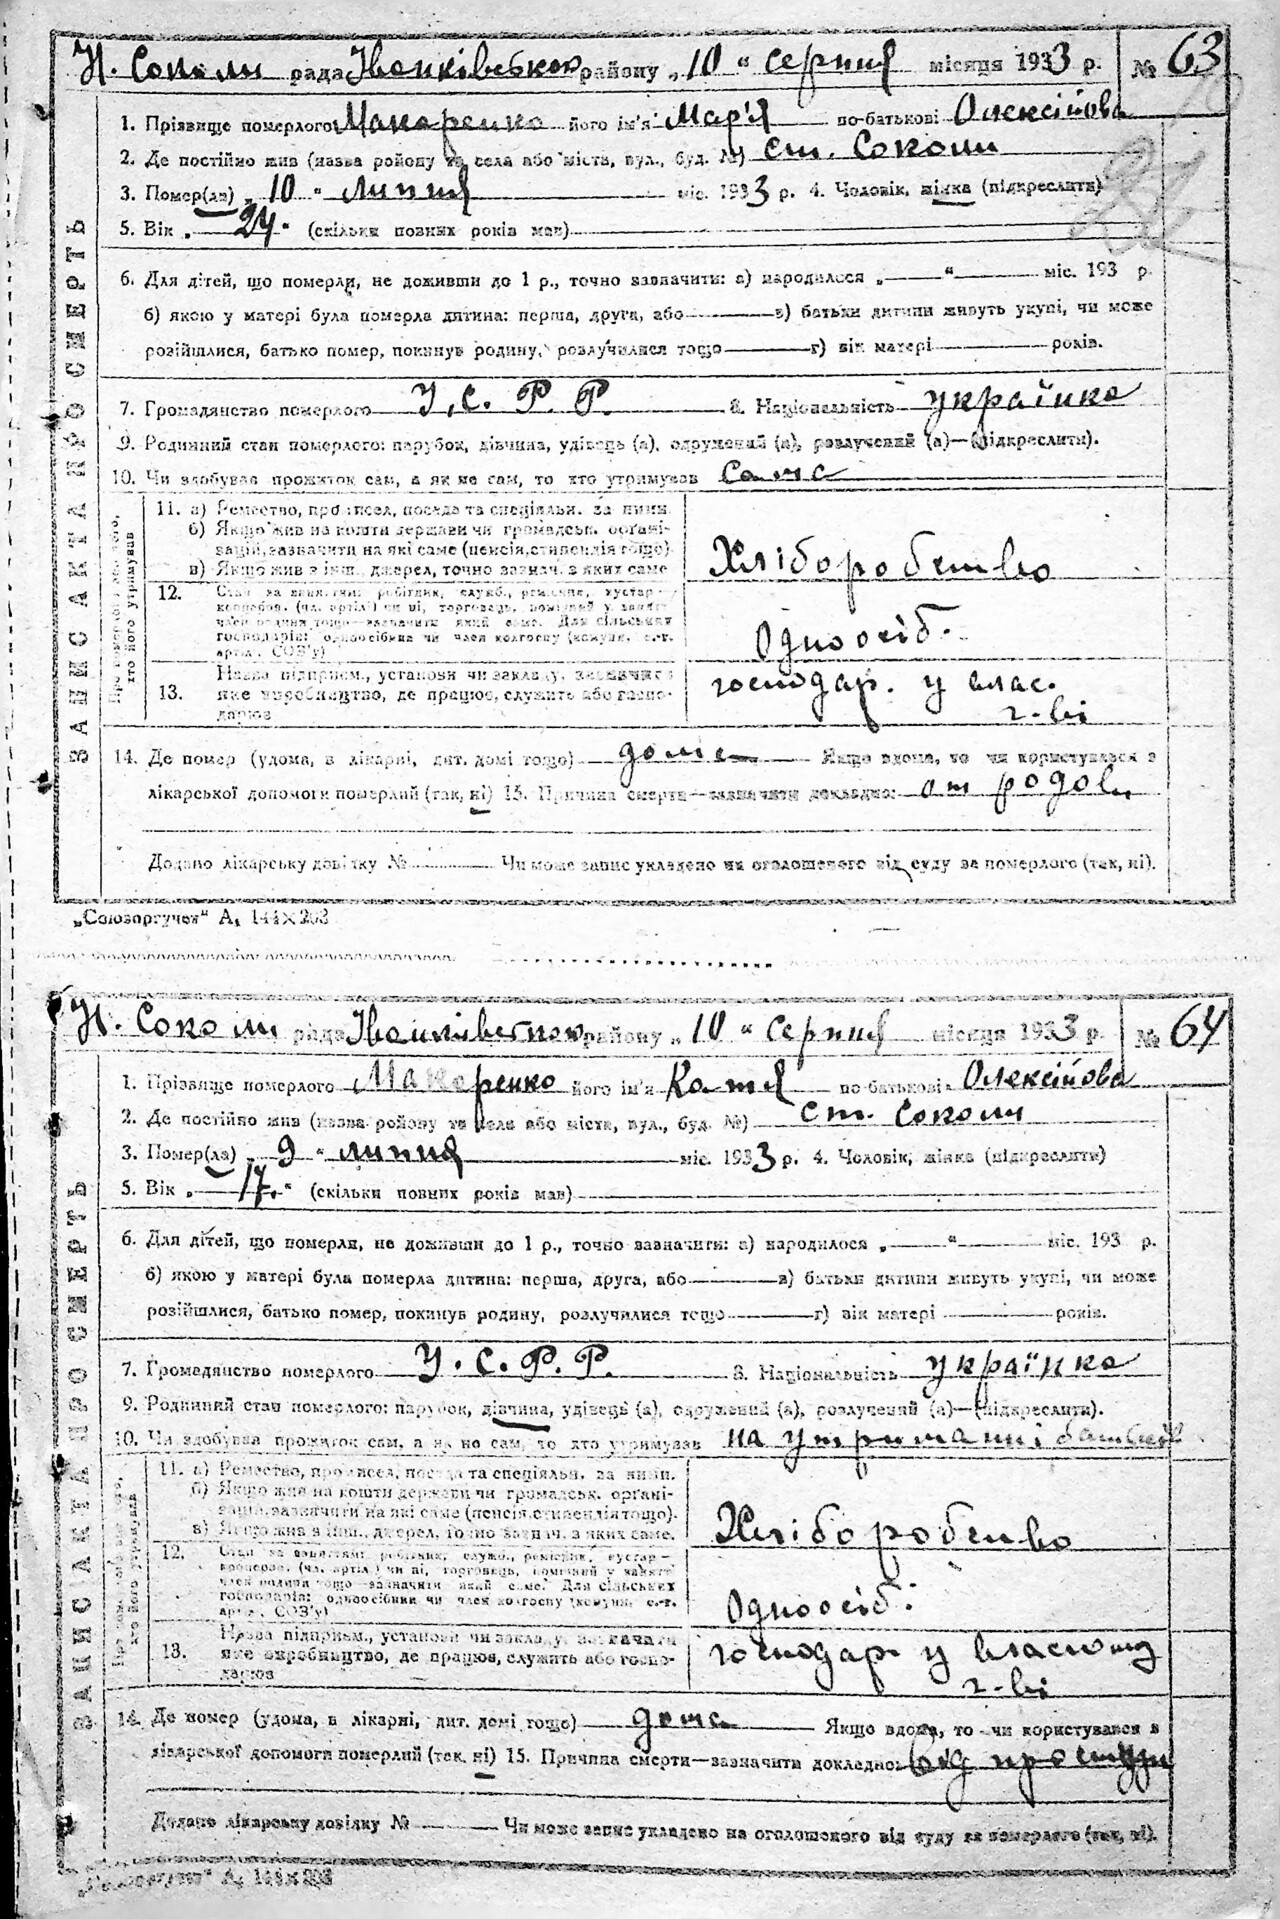 Н. Соколи рада Іванківського району „10“ серпня місяця 1933 р. № 63
1. Прізвище померлого Макаренко його ім'я Мар'я по-батькові Олексійова
2. Де постійно жив (назва району та села або міста, вул., буд. №) ст. Соколи
3. Помер(ла) „10“ липня міс. 1933 р. 4. Чоловік, жінка (підкреслити)
5. Вік „24.“ (скільки повних років мав)
6. Для дітей, що померли, не доживши до 1 р., точно зазначити: а) народилося „ “ міс. 193 р.
б) якою у матері була померла дитина: перша, друга, або в) батьки дитини живуть укупі, чи може
розійшлися, батько помер, покинув родину, розлучилися тощо г) вік матері років.
7. Громадянство померлого У.С.Р.Р. 8. Національність українка
9. Родинний стан померлого: парубок, дівчина, удівець (а), одружений (а), розлучений (а)—(підкреслити).
10. Чи здобував прожиток сам, а як не сам, то хто утримував сама
ЗАПИС АКТА ПРО СМЕРТЬ
Про померлого або того, хто його утримував
11. а) Ремество, промисел, посада та спеціяльн. за ними.
б) Якщо жив на кошти держави чи громадськ. органі-
зацій, зазначити на які саме (пенсія, стипендія тощо)
в) Якщо жив з інш. джерел, точно зазнач. з яких саме
Хліборобство
12. Стан за заняттям: робітник, служб., ремісник, кустар-
кооперов. (чл. артілі) чи ні, торговець, помічний у занятті
член родини тощо—зазначити який саме. Для сільських
господарів: одноосібник чи член колгоспу (комуни, с.-г.
артіл., СОЗ'у)
Одноосіб.
13. Назва підприєм., установи чи закладу, зазначити
яке виробництво, де працює, служить або госпо-
дарює
господар. у влас.
г-ві
14. Де помер (удома, в лікарні, дит. домі тощо) дома Якщо вдома, то чи користувався з
лікарської допомоги померлий (так, ні) 15. Причина смерти—зазначити докладно: от родов
Додано лікарську довідку № Чи може запис укладено на оголошеного від суду за померлого (так, ні).
„Союзоргучет“ А, 144×203
Н. Соколи рада Іванківського району „10“ серпня місяця 1933 р. № 64
1. Прізвище померлого Макаренко його ім'я Катя по-батькові Олексійова
2. Де постійно жив (назва району та села або міста, вул., буд. №) ст. Соколи
3. Помер(ла) „9“ липня міс. 1933 р. 4. Чоловік, жінка (підкреслити)
5. Вік „17.“ (скільки повних років мав)
6. Для дітей, що померли, не доживши до 1 р., точно зазначити: а) народилося „ “ міс. 193 р.
б) якою у матері була померла дитина: перша, друга, або в) батьки дитини живуть укупі, чи може
розійшлися, батько помер, покинув родину, розлучилися тощо г) вік матері років.
7. Громадянство померлого У.С.Р.Р. 8. Національність українка
9. Родинний стан померлого: парубок, дівчина, удівець (а), одружений (а), розлучений (а)—(підкреслити).
10. Чи здобував прожиток сам, а як не сам, то хто утримував на утриманні батьків
ЗАПИС АКТА ПРО СМЕРТЬ
Про померлого або того, хто його утримував
11. а) Ремество, промисел, посада та спеціяльн. за ними.
б) Якщо жив на кошти держави чи громадськ. органі-
зацій, зазначити на які саме (пенсія, стипендія тощо).
в) Якщо жив з інш. джерел, точно зазнач. з яких саме.
Хліборобство
12. Стан за заняттям: робітник, служб., ремісник, кустар-
кооперов. (чл. артіл.) чи ні, торговець, помічний у занятті
член родини тощо—зазначити який саме. Для сільських
господарів: одноосібник чи член колгоспу (комуни, с.-г.
артіл., СОЗ'у)
Одноосіб.
13. Назва підприєм., установи чи закладу, зазначити
яке виробництво, де працює, служить або госпо-
дарює
господар у власному
г-ві
14. Де помер (удома, в лікарні, дит. домі тощо) дома Якщо вдома, то чи користувався з
лікарської допомоги померлий (так, ні) 15. Причина смерти—зазначити докладно: від простуди
Додано лікарську довідку № Чи може запис укладено на оголошеного від суду за померлого (так, ні).
„Союзоргучет“ А, 144×203